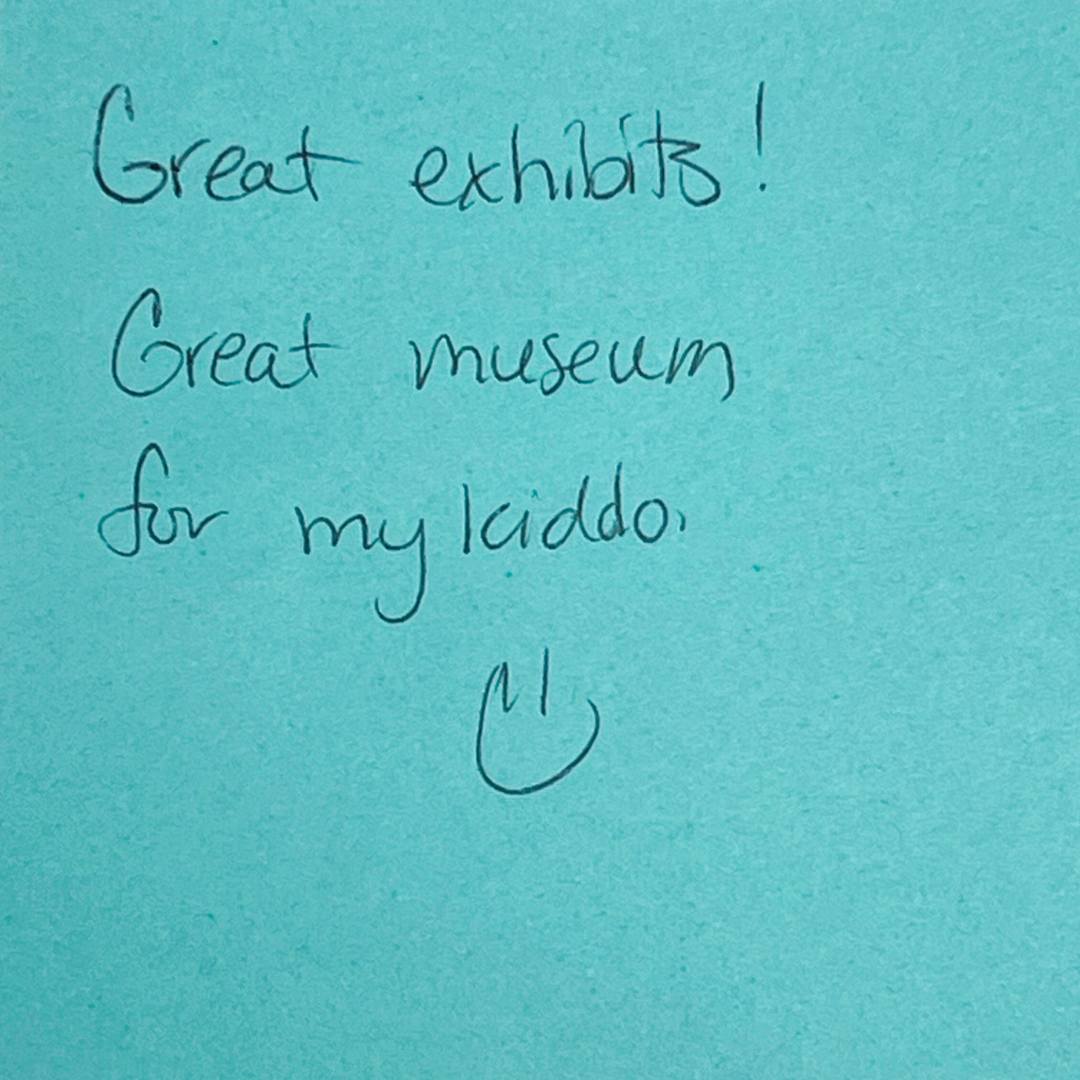 Great exhibits!
Great museum
for my kiddo.